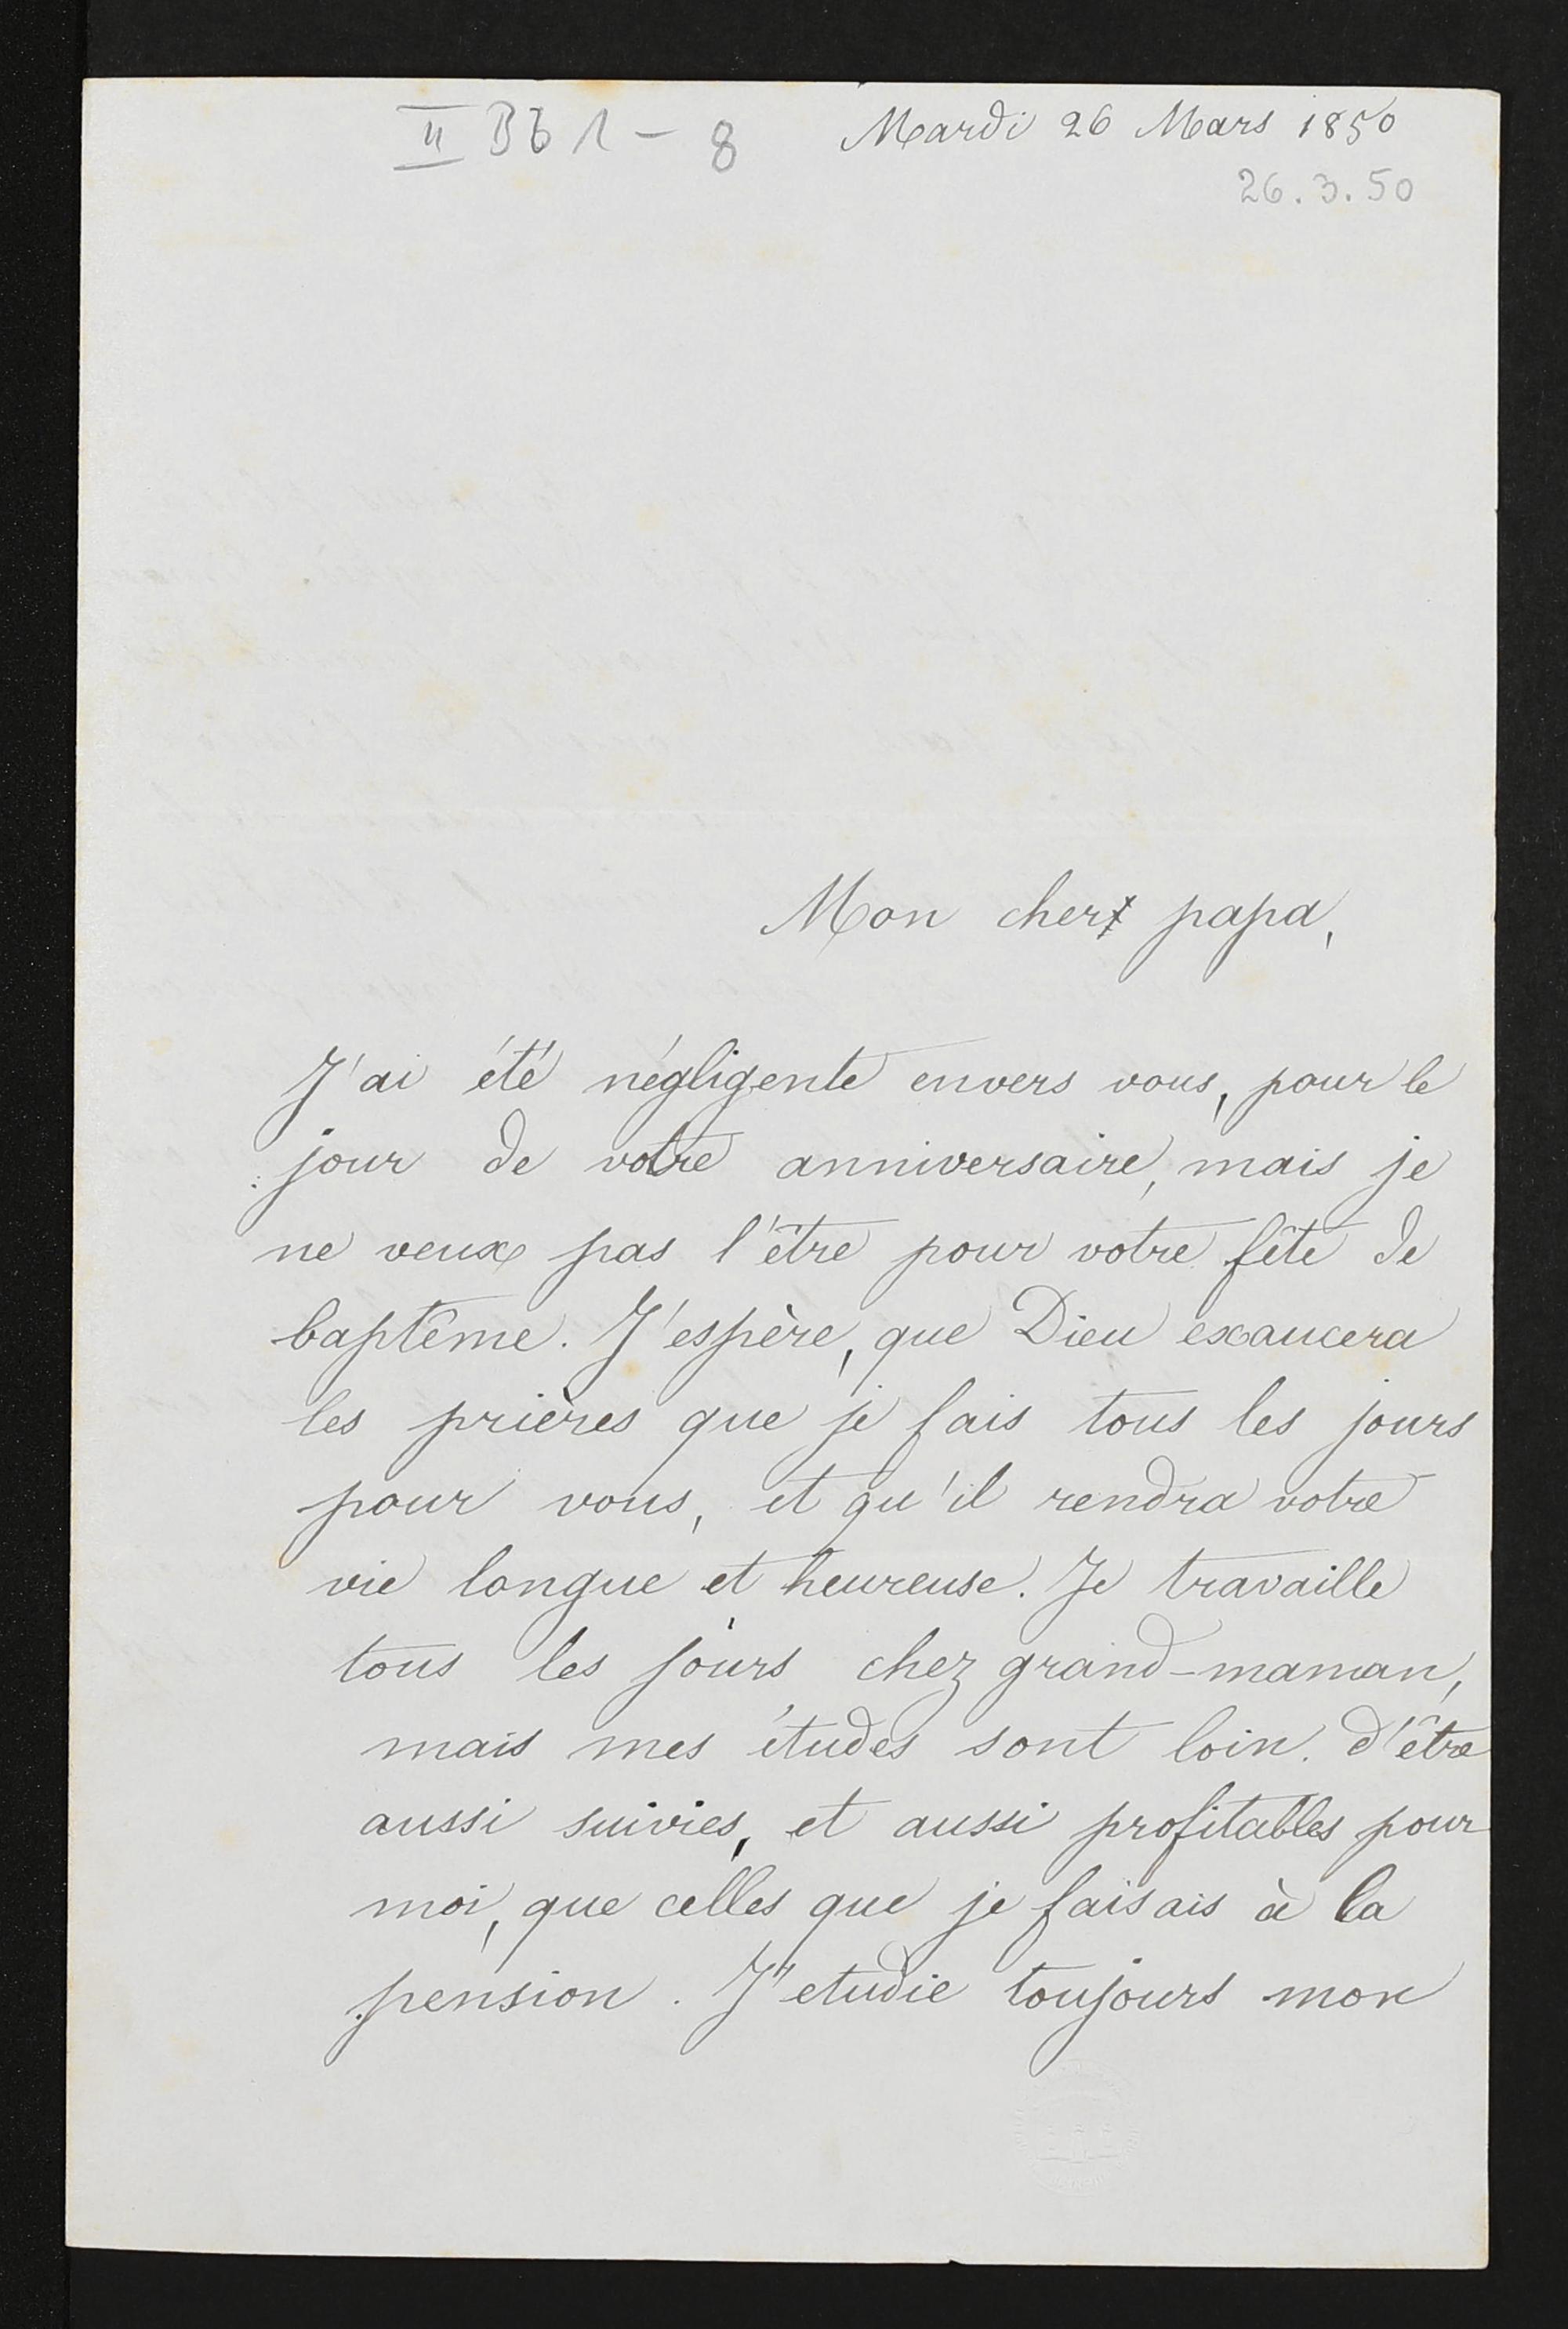 II Bb 1 - 8 Mardi 26 Mars 1850
26.3.50
Mon cher papa,
J'ai été négligente envers vous, pour le
jour de votre anniversaire, mais je
ne veux pas l'être pour votre fête de
baptême. J'espère, que Dieu exaucera
les prières que je fais tous les jours
pour vous, et qu'il rendra votre
vie longue et heureuse. Je travaille
tous les jours chez grand-maman,
mais mes études sont loin d'être
aussi suivies, et aussi profitables pour
moi, que celles que je faisais à la
pension. J'etudie toujours mon